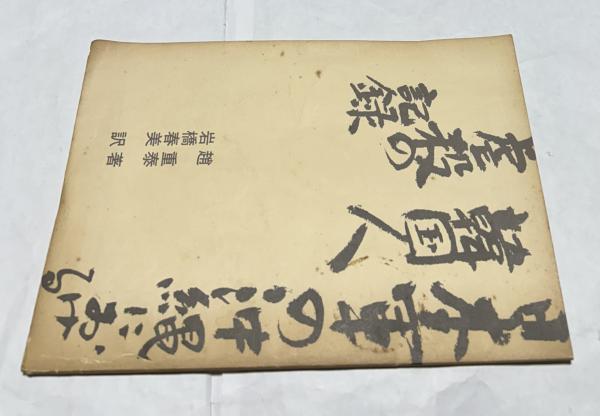 日本軍の沖縄における
韓国人
虐殺の
記録
趙重泰 著
岩橋春美 訳